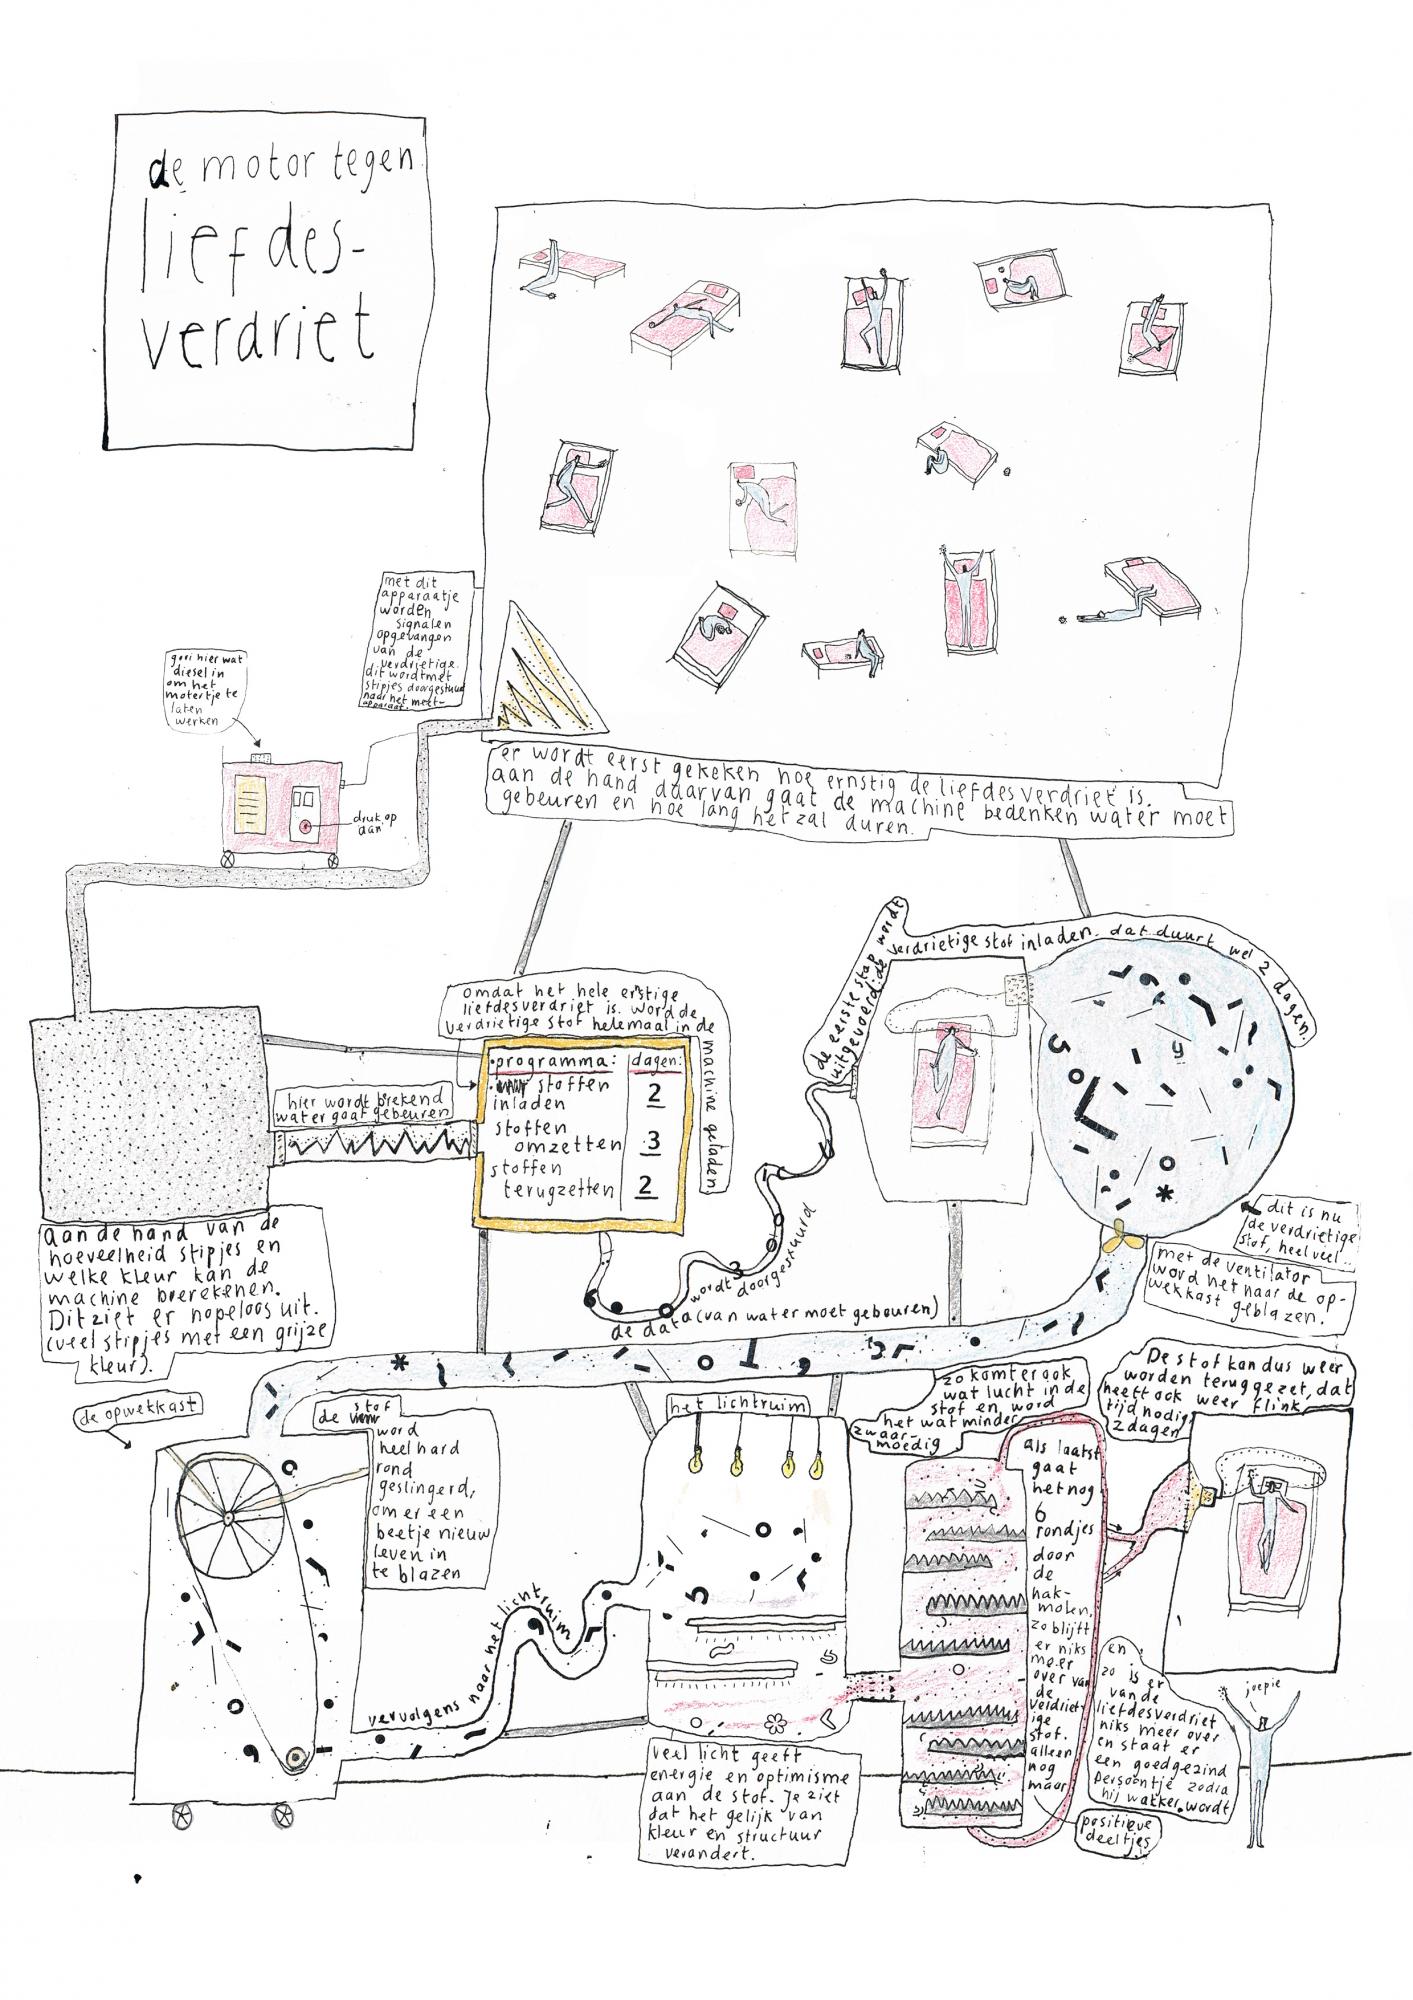 de motor tegen
liefdes-
verdriet
met dit
apparaatje
worden
signalen
opgevangen
van de
verdrietige.
dit wordt met
stipjes doorgestuurd
naar het meet-
apparaat.
gooi hier wat
diesel in
om het
motertje te
laten
werken
druk op
aan
er wordt eerst gekeken hoe ernstig de liefdesverdriet is.
aan de hand daarvan gaat de machine bedenken water moet
gebeuren en hoe lang het zal duren.
omdat het hele erstige
liefdesverdriet is. word de
verdrietige stof helemaal in de
machine geladen
programma:
dagen:
stoffen
inladen
2
stoffen
omzetten
3
stoffen
terugzetten
2
hier wordt brekend
water gaat gebeuren
Aan de hand van de
hoeveelheid stipjes en
welke kleur kan de
machine brerekenen.
Dit ziet er hopeloos uit.
(veel stipjes met een grijze
kleur).
de data (van water moet gebeuren)
wordt doorgestuurd
de eerste stap wordt
uitgevoerd: de verdrietige stof inladen. dat duurt wel 2 dagen.
dit is nu
de verdrietige
stof, heel veel..
met de ventilator
word het naar de op-
wekkast geblazen.
de opwekkast
de stof
word
heel hard
rond
geslingerd,
om er een
beetje nieuw
leven in
te blazen
vervolgens naar het lichtruim
het lichtruim
veel licht geeft
energie en optimisme
aan de stof. Je ziet
dat het gelijk van
kleur en structuur
verandert.
zo komt er ook
wat lucht in de
stof en word
het wat minder
zwaar-
moedig
als laatst
gaat
het nog
6
rondjes
door
de
hak-
molen,
zo blijft
er niks
meer
over van
de
verdriet-
ige
stof.
alleen
nog
maar
positieve
deeltjes
De stof kan dus weer
worden teruggezet, dat
heeft ook weer flink
tijd nodig
2 dagen
en
zo is er
van de
liefdesverdriet
niks meer over
en staat er
een goedgezind
persoontje zodra
hij wakker wordt
joepie